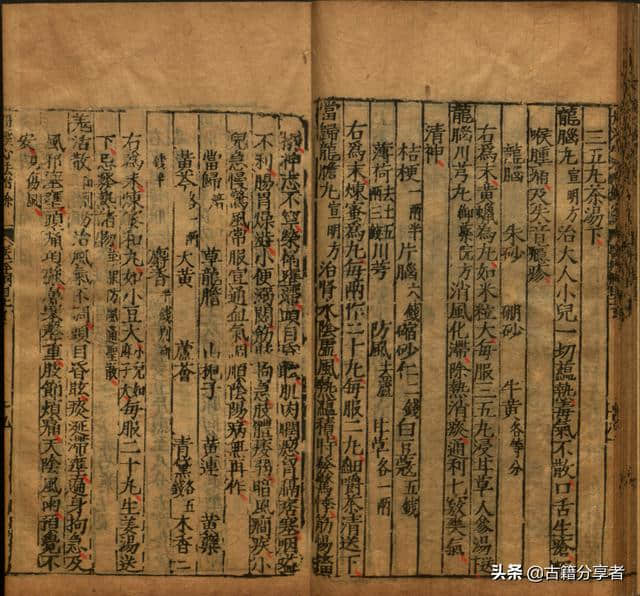 三五丸茶湯下
龍腦丸宣明方治大人小兒一切蘊熱毒氣不散口舌生瘡
喉腫痛及失音癮疹
龍腦 朱砂 硼砂 牛黃各等分
右為末黃蠟為丸如米粒大每服三五丸浸甘草人參湯送下
龍腦川芎丸御藥院方消風化滯除熱消痰通利七竅爽人氣
清神
桔梗一兩半 片腦六錢 縮砂仁二錢 白豆蔻五錢
薄荷去土五兩三錢 川芎 防風去蘆 甘草各一兩
右為末煉蜜為丸每兩作二十丸每服二丸細嚼茶清送下
當歸龍膽丸宣明方治腎水陰虛風熱蘊積時發驚悸筋惕搐
神志不寧榮衛壅滯頭目昏眩肌肉瞤瘛胷膈痞塞咽嗌
不利腸胃燥澁小便閉筋脉拘急肢體痿弱暗風癎疾小
兒急慢驚風常服宜通血氣調順陰陽病無再作
當歸焙 草龍膽 山梔子 黃連 黃蘗
黃芩 大黃 蘆薈 青黛各五 木香二
錢半 麝香半錢別研
右為末煉蜜和丸如小豆大小兒如麻子大每服二十丸生姜湯送
下忌發熱諸物兼服防風通聖散
羗活散御藥院方治風氣不調頭目昏眩痰涎滯壅遍身拘急及
風邪塞壅頭痛項強鼻塞聲重肢節煩痛天陰風雨預覺不
安傷風
头条 @古籍分享者